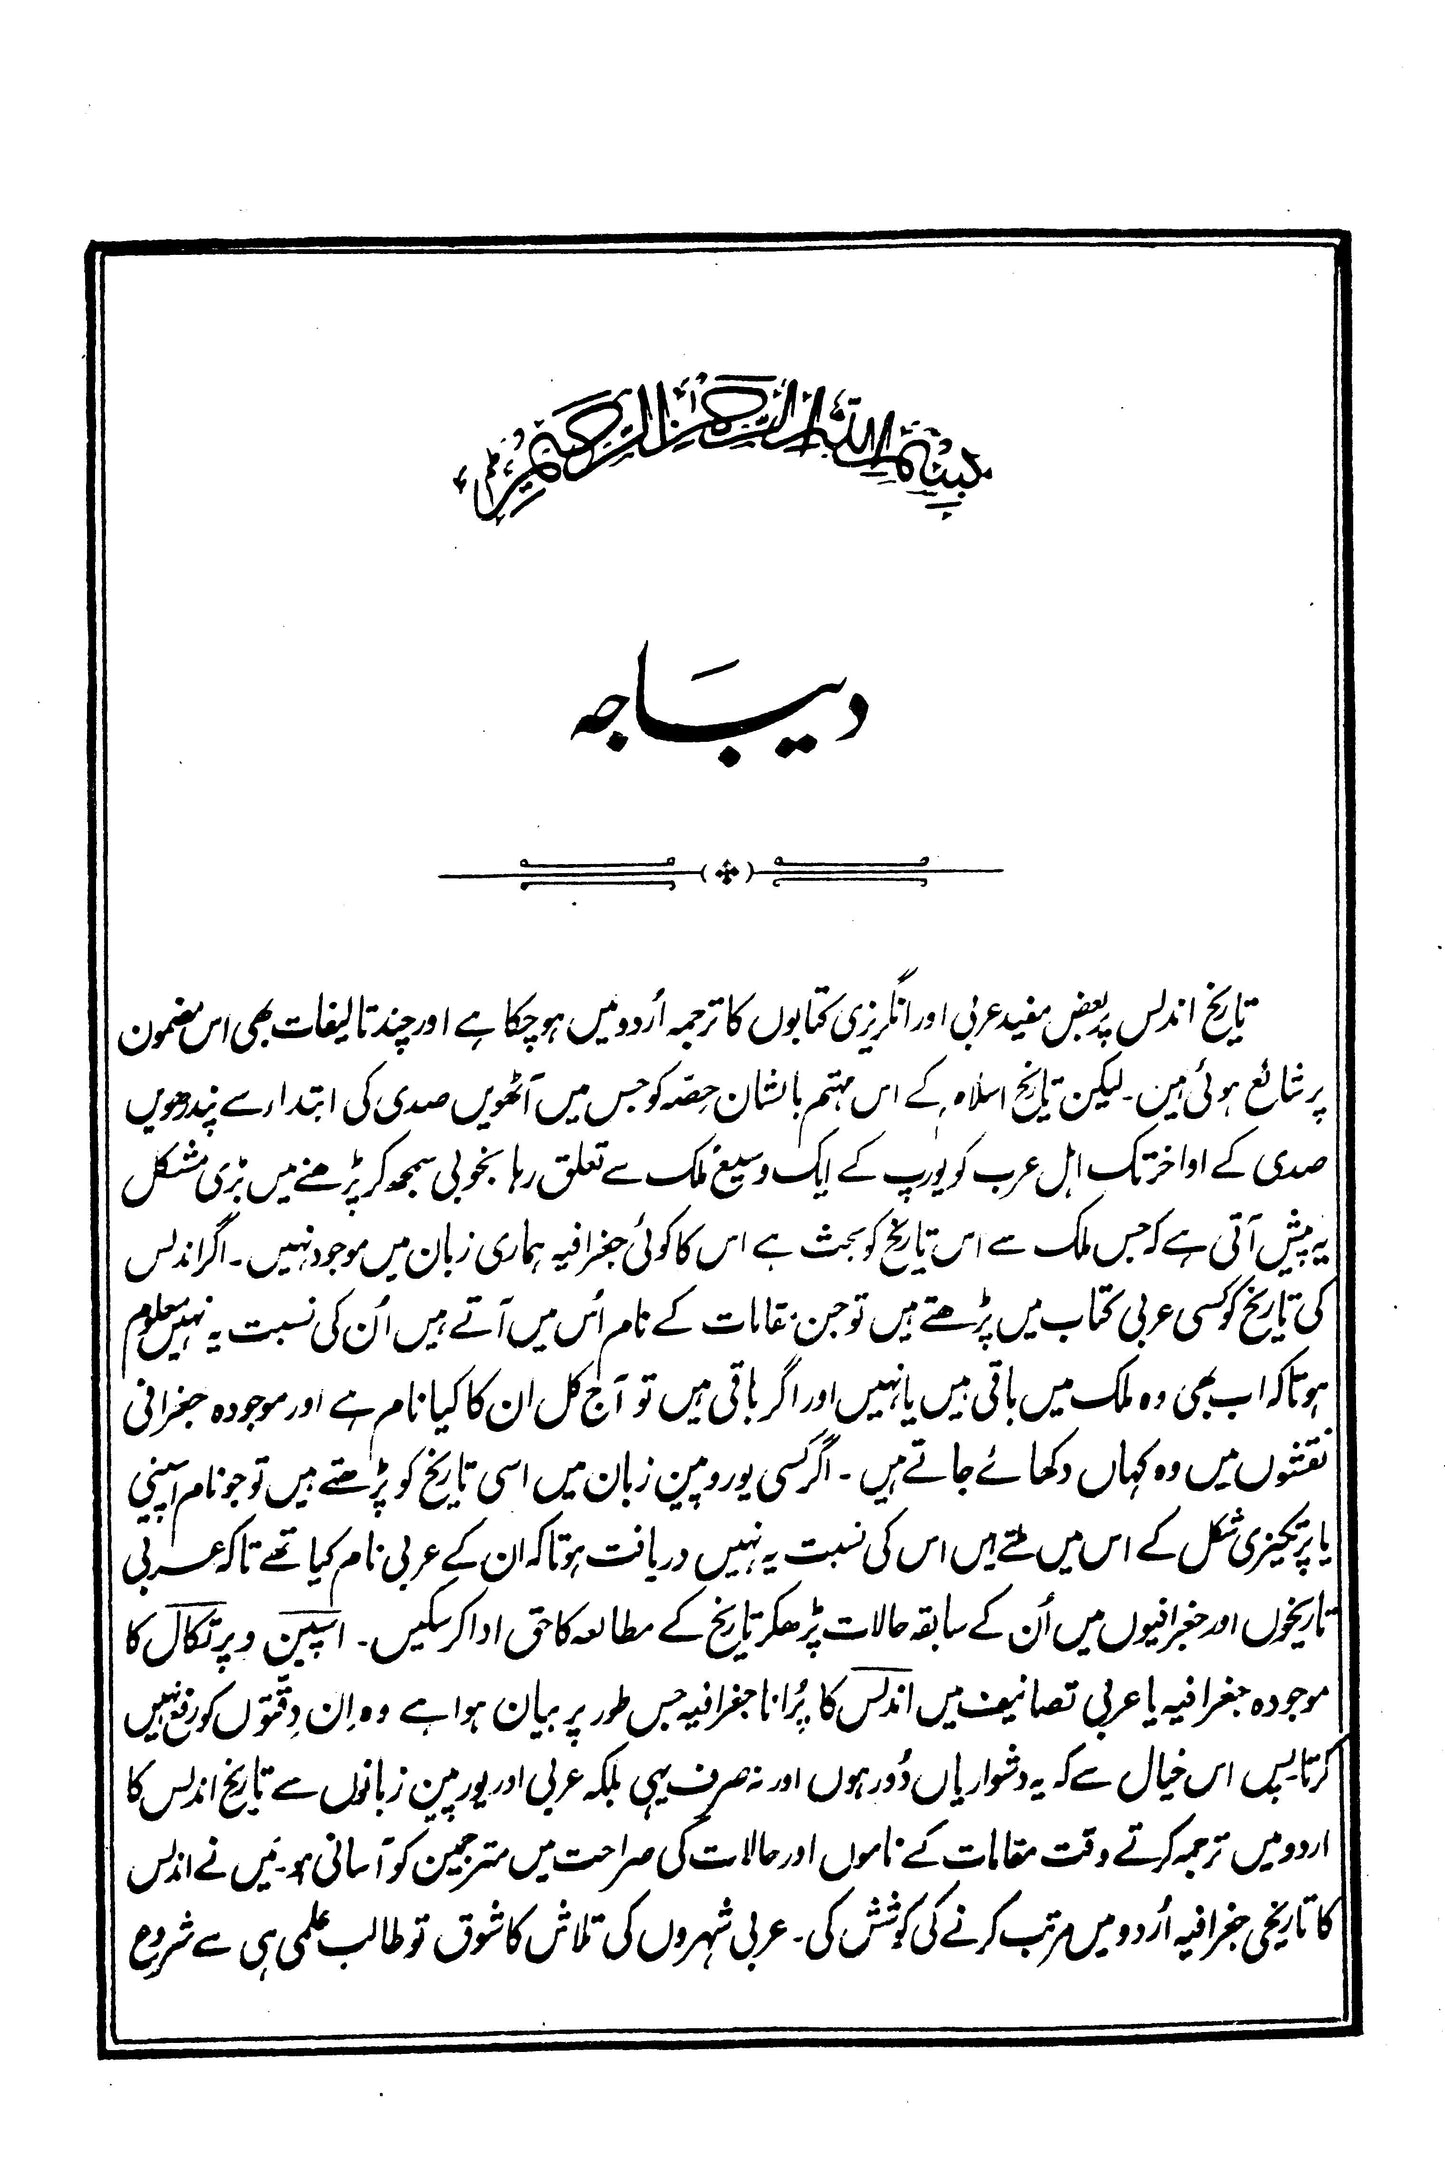 بِسْمِ اللهِ الرَّحْمٰنِ الرَّحِيْمِ
دیباجہ
تاریخ اندلس پر بعض مفید عربی اور انگریزی کتابوں کا ترجمہ اُردو میں ہو چکا ہے اور چند تالیفات بھی اس مضمون
پر شائع ہوئی ہیں۔ لیکن تاریخ اسلام کے اس مہتم بالشان حصّہ کو جس میں آٹھویں صدی کی ابتداء سے پندرھویں
صدی کے اواخر تک اہل عرب کو یورپ کے ایک وسیع ملک سے تعلق رہا بخوبی سمجھ کر پڑھنے میں بڑی مشکل
یہ پیش آتی ہے کہ جس ملک سے اس تاریخ کو بحث ہے اس کا کوئی جغرافیہ ہماری زبان میں موجود نہیں۔ اگر اندلس
کی تاریخ کو کسی عربی کتاب میں پڑھتے ہیں تو جن مقامات کے نام اُس میں آتے ہیں اُن کی نسبت یہ نہیں معلوم
ہوتا کہ اب بھی وہ ملک میں باقی ہیں یا نہیں اور اگر باقی ہیں تو آج کل ان کا کیا نام ہے اور موجودہ جغرافی
نقشوں میں وہ کہاں دکھائے جاتے ہیں۔ اگر کسی یوروپین زبان میں اسی تاریخ کو پڑھتے ہیں تو جو نام اسپینی
یا پرتکیزی شکل کے اس میں ملتے ہیں اس کی نسبت یہ نہیں دریافت ہوتا کہ ان کے عربی نام کیا تھے تاکہ عربی
تاریخوں اور جغرافیوں میں اُن کے سابقہ حالات پڑھکر تاریخ کے مطالعہ کا حق ادا کر سکیں۔ اسپین و پرتکال کا
موجودہ جغرافیہ یا عربی تصانیف میں اندلس کا پُرانا جغرافیہ جس طور پر بیان ہوا ہے وہ اِن دِقّتوں کو رفع نہیں
کرتا۔ پس اس خیال سے کہ یہ دشواریاں دُور ہوں اور نہ صرف یہی بلکہ عربی اور یورپین زبانوں سے تاریخ اندلس کا
اردو میں ترجمہ کرتے وقت مقامات کے ناموں اور حالات کی صراحت میں مترجمین کو آسانی ہو۔ مَیں نے اندلس
کا تاریخی جغرافیہ اُردو میں مرتب کرنے کی کوشش کی۔ عربی شہروں کی تلاش کا شوق تو طالب علمی ہی سے شروع